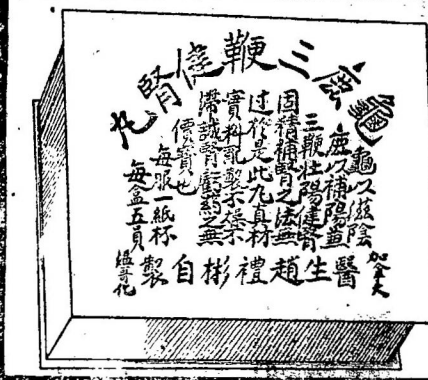 龜鹿三鞭健腎丸
加拿大
龜以滋陰
鹿以補陽兼
三鞭壯陽建腎
固精補腎之法無
过於是此丸真材
實料配製不燥不
滯誠腎虧药之無
價寶也
每服一紙杯
每盒五員
醫生趙禮彬自製
温哥化